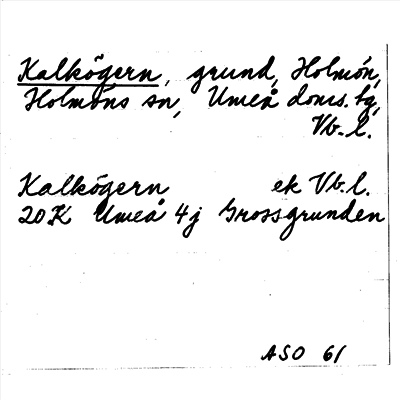 Kalkögern, grund, Holmön,
Holmöns sn, Umeå doms. bg,
Vb. l.
Kalkögern ek Vb. l.
20K Umeå 4j Grossgrunden
ASO 61